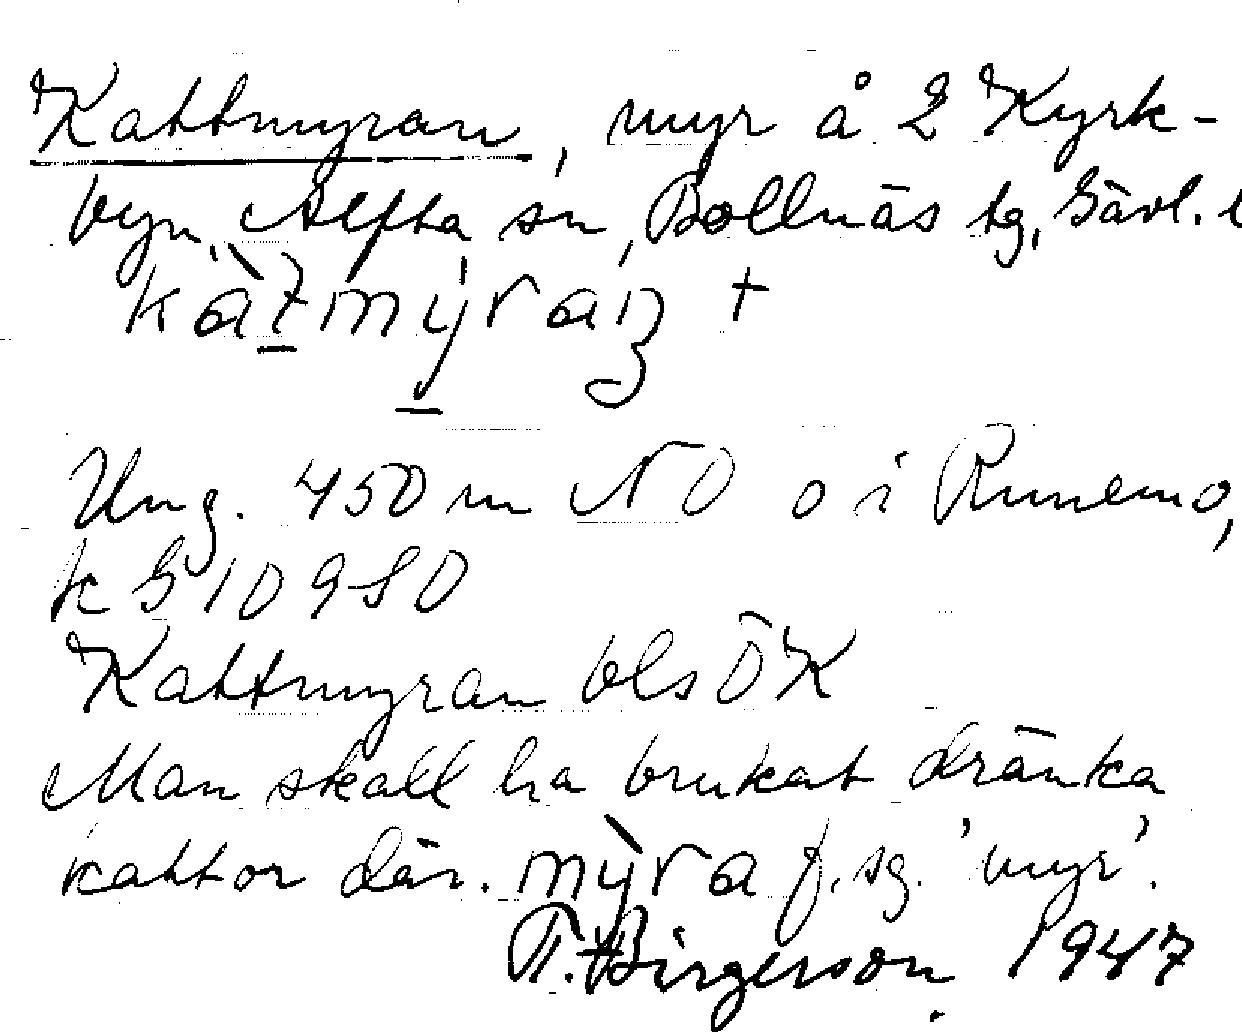 Kattmyran, myr å 2 Kyrk-
byn, Alfta sn, Bollnäs tg, Gävl. l
kàtmỳran +
Ung. 450 m NO o i Runemo,
k G 10 9 S O
Kattmyran bls ÖK
Man skall ha brukat dränka
kattor där. mỳra f. sg. 'myr'.
T. Birgerson 1947